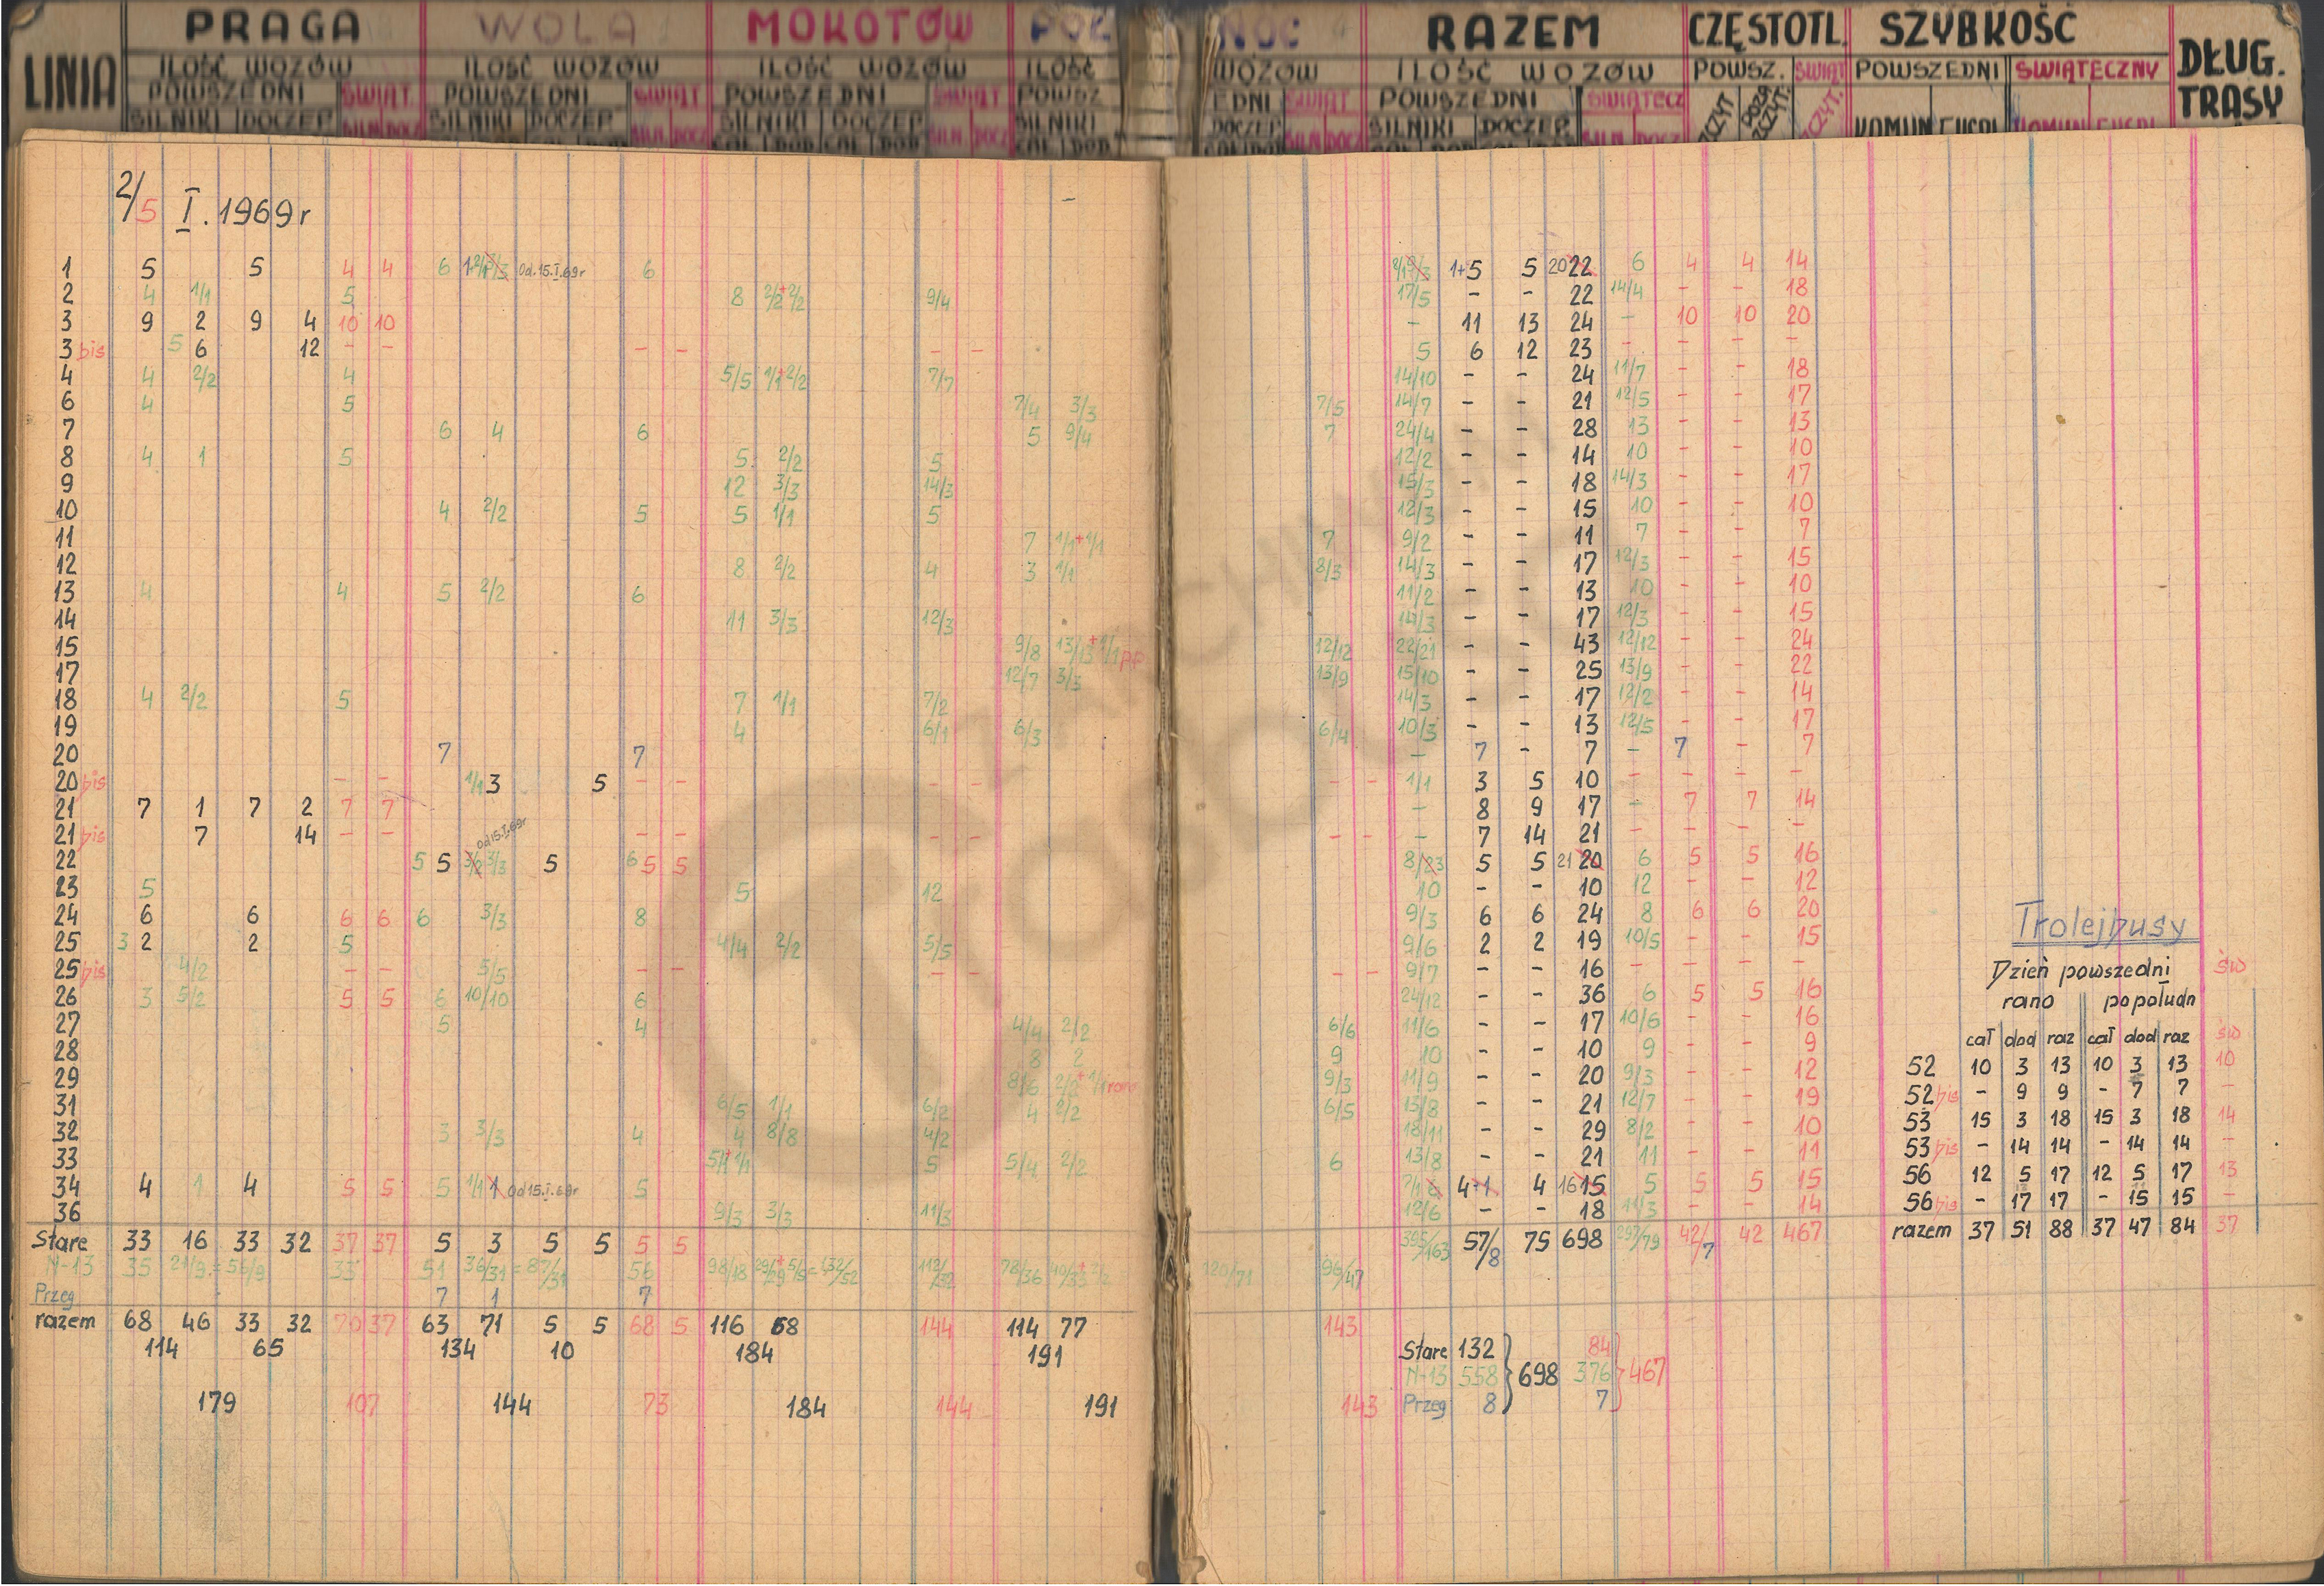 LINIA PRAGA WOLA MOKOTÓW PÓŁ NOC RAZEM CZĘSTOTL. SZYBKOŚĆ DŁUG. TRASY
ILOŚĆ WOZÓW ILOŚĆ WOZÓW ILOŚĆ WOZÓW ILOŚĆ WOZÓW ILOŚĆ WOZÓW POWSZ. ŚWIĄT POWSZEDNI ŚWIĄTECZNY
POWSZEDNI ŚWIĄT. POWSZEDNI ŚWIĄT POWSZEDNI ŚWIĄT POWSZ EDNI ŚWIĄT POWSZEDNI ŚWIĄTECZ
SILNIKI DOCZEP SILN. DOCZ SILNIKI DOCZEP SILN DOCZ SILNIKI DOCZEP SILN DOCZ SILNIKI DOCZEP SILN DOCZ SILNIKI DOCZEP SILN DOCZ
2/5 I. 1969r
1 5 5 4 4 6 Od. 15.I.69r 6 1+5 5 20 22 6 4 4 14
2 4 1/1 5 8 2/2+2/2 9/4 17/5 - - 22 14/4 - - 18
3 9 2 9 4 10 10 - 11 13 24 - 10 10 20
3 bis 5 6 12 - - - - - - 5 6 12 23 - - - -
4 4 2/2 4 5/5 1/1+2/2 7/7 14/10 - - 24 11/7 - - 18
6 4 5 7/4 3/3 7/5 14/7 - - 21 12/5 - - 17
7 6 4 6 5 9/4 7 24/4 - - 28 13 - - 13
8 4 1 5 5 2/2 5 12/2 - - 14 10 - - 10
9 12 3/3 14/3 15/3 - - 18 14/3 - - 17
10 4 2/2 5 5 1/1 5 12/3 - - 15 10 - - 10
11 7 1/1+1/1 7 9/2 - - 11 7 - - 7
12 8 2/2 4 3 1/1 8/3 14/3 - - 17 12/3 - - 15
13 4 4 5 2/2 6 11/2 - - 13 10 - - 10
14 11 3/3 12/3 14/3 - - 17 12/3 - - 15
15 9/8 13/13+1/1 pp 12/12 22/21 - - 43 12/12 - - 24
17 12/7 3/3 13/9 15/10 - - 25 13/9 - - 22
18 4 2/2 5 7 1/1 7/2 14/3 - - 17 12/2 - - 14
19 4 6/1 6/3 6/4 10/3 - - 13 12/5 - - 17
20 7 7 - 7 - 7 - 7 - 7
20 bis - - 1/1 3 5 - - - - - - 1/1 3 5 10 - - - -
21 7 1 7 2 7 7 - 8 9 17 - 7 7 14
21 bis 7 14 - - od 15.I.69r - - - - - - - 7 14 21 - - - -
22 5 5 3/2 3/3 5 6 5 5 8/23 5 5 21 20 6 5 5 16
23 5 5 12 10 - - 10 12 - - 12
24 6 6 6 6 6 3/3 8 9/3 6 6 24 8 6 6 20
25 3 2 2 5 4/4 2/2 5/5 9/6 2 2 19 10/5 - - 15
25 bis 4/2 - - 5/5 - - - - - - 9/7 - - 16 - - - -
26 3 5/2 5 5 6 10/10 6 24/12 - - 36 6 5 5 16
27 5 4 4/4 2/2 6/6 11/6 - - 17 10/6 - - 16
28 8 2 9 10 - - 10 9 - - 9
29 8/6 2/2+1/1 rano 9/3 11/9 - - 20 9/3 - - 12
31 6/5 1/1 6/2 4 2/2 6/5 13/8 - - 21 12/7 - - 19
32 3 3/3 4 4 8/8 4/2 18/11 - - 29 8/2 - - 10
33 5/1 1/1 5 5/4 2/2 6 13/8 - - 21 11 - - 11
34 4 1 4 5 5 5 1/1 1 Od 15.I.69r 5 4+1 4 16 15 5 5 5 15
36 9/3 3/3 11/3 12/6 - - 18 11/3 - - 14
Stare 33 16 33 32 37 37 5 3 5 5 5 5 395/163 57/8 75 698 297/79 42/7 42 467
N-13 35 21/9 = 56/9 33 51 36/31 = 87/31 56 98/18 29/29+5/5 = 132/52 112/32 78/36 120/71 96/47
Przeg 7 1 7
razem 68 46 33 32 70 37 63 71 5 5 68 5 116 68 144 114 77 143
114 65 134 10 184 191
179 107 144 73 184 144 191 143
Stare 132 84
N-13 558 698 376 467
Przeg 8 7
Trolejbusy
Dzień powszedni św
rano popołudn
cał dod raz cał dod raz św
52 10 3 13 10 3 13 10
52 bis - 9 9 - 7 7 -
53 15 3 18 15 3 18 14
53 bis - 14 14 - 14 14 -
56 12 5 17 12 5 17 13
56 bis - 17 17 - 15 15 -
razem 37 51 88 37 47 84 37